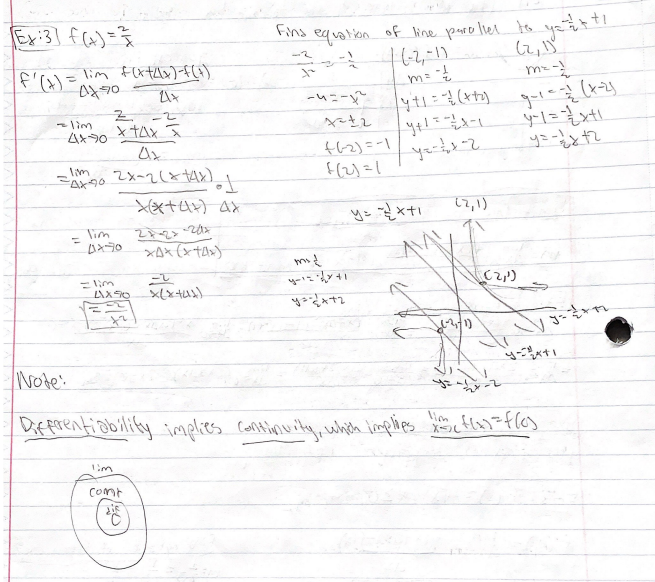 Ex:3] f(x) = 2/x
f'(x) = lim Δx→0 (f(x+Δx)-f(x))/Δx
= lim Δx→0 (2/(x+Δx) - 2/x)/Δx
= lim Δx→0 (2x-2(x+Δx))/(x(x+Δx)) · 1/Δx
= lim Δx→0 (2x-2x-2Δx)/(xΔx(x+Δx))
= lim Δx→0 -2/(x(x+Δx))
= -2/x²
Find equation of line parallel to y=-1/2x+1
-2/x² = -1/2
-4=-x²
x=±2
f(-2)=-1
f(2)=1
(-2,-1)
m=-1/2
y+1=-1/2(x+2)
y+1=-1/2x-1
y=-1/2x-2
(2,1)
m=-1/2
y-1=-1/2(x-2)
y-1=-1/2x+1
y=-1/2x+2
y=-1/2x+1
(2,1)
m=1/2
y-1=-1/2x+1
y=-1/2x+2
(2,1)
(-2,-1)
y=-1/2x+2
y=-1/2x+1
y=-1/2x-2
Note:
Differentiability implies continuity, which implies lim x→c f(x)=f(c)
lim
cont
dif